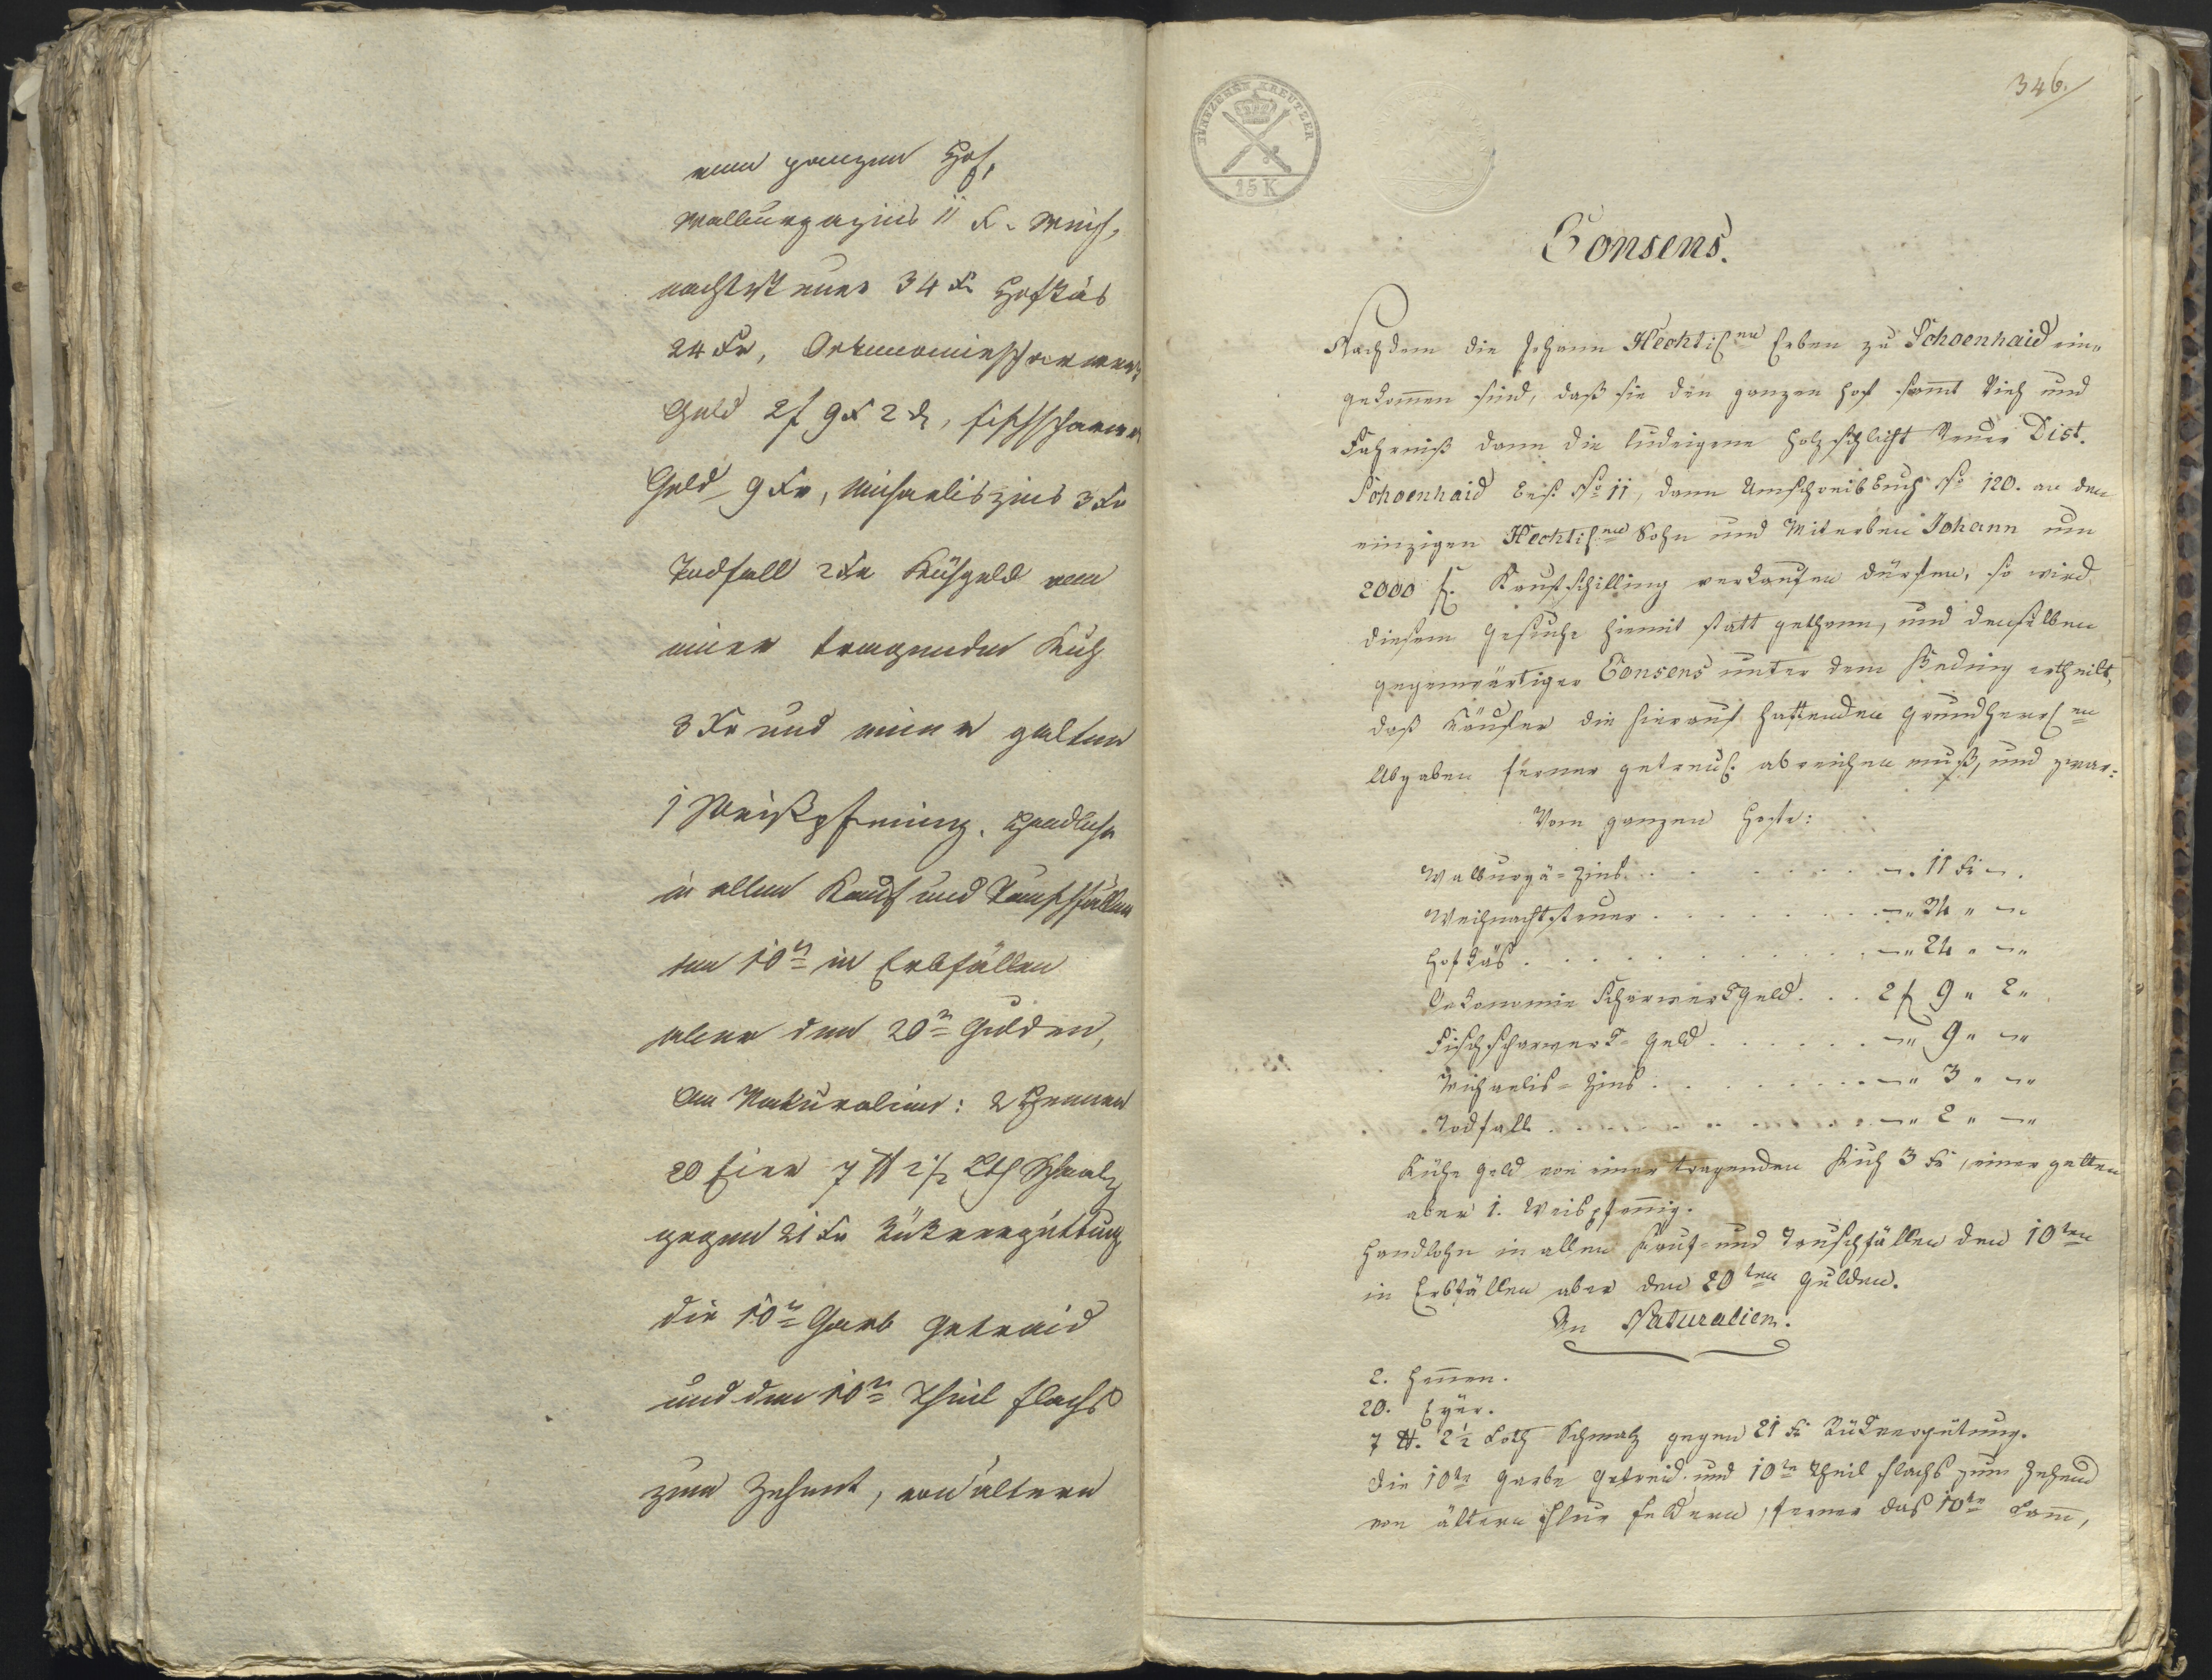 vom ganzen Hof,
Walburgazins 11 Kr. Weih,
nachtsteuer 34 Kr Hofkäs
24 Kr, Oekonomiescharwerk
Geld 2 f 9 Kr 2 d, Fischscharwerk
Geld 9 Kr, Michaeliszins 3 Kr
Todfall 2 Kr Kühgeld von
einer tragenden Kuh
3 Kr und einer gelten
1 Weißpfening. Handlohn
in allen Kauf und Tauschfällen
den 10n in Erbfällen
aber den 20n Gulden,
An Naturalien: 2 Hennen
20 Eier 7 ℔ 2 1/2 Lth Schmalz
gegen 21 Kr Rükvergüttung
die 10n Garb Getraid
und den 10n Theil Flachs
zum Zehent, von ältern
346.
FÜNFZEHN KREUTZER
15 K
Consens.
Nachdem die Johann Hechtischen Erben zu Schoenhaid ein„
gekommen sind, daß sie den ganzen Hof samt Vieh und
Fahrniß dann die ludeigene Holzschlicht Steuer Dist.
Schoenhaid Bes. No 11, dann Umschreibbuch No 120. an den
einzigen Hechtischen Sohn und Miterben Johann um
2000 f. Kaufschilling verkaufen dürfen, so wird
diesem Gesuche hiemit statt gethan, und denselben
gegenwärtiger Consens unter dem Beding ertheilt,
daß Käufer die hierauf haftenden grundherrlen
Abgaben ferner getreul. abreichen muß, und zwar:
Vom ganzen Hofe:
Walburgä=Zins . . . . . . . —. 11 Kr —.
Weihnachtsteuer . . . . . . . —„ 34 „ —
Hofkäs . . . . . . . . . —„ 24 „ —„
Oekonomie Scharwerkgeld . . . 2 f 9 „ 2 „
Fischscharwerk=Geld . . . . . . —„ 9 „ —„
Michaelis=Zins . . . . . . . . —„ 3 „ —„
Todfall . . . . . . . . . . —„ 2 „ —„
Kühe geld von einer tragenden Kuh 3 Kr, einer gelten
aber 1. Weispfenig.
Handlohn in allen Kauf= und Tauschfällen den 10ten
in Erbfällen aber den 20ten Gulden.
An Naturalien.
2. Henen.
20. Eyer.
7 ℔. 2 1/2 Loth Schmalz gegen 21 Kr Rükvergütung.
die 10te Garbe Getreid und 10te Theil Flachs zum Zehend
von ältern Flur Feldern, ferner das 10te Lamm,